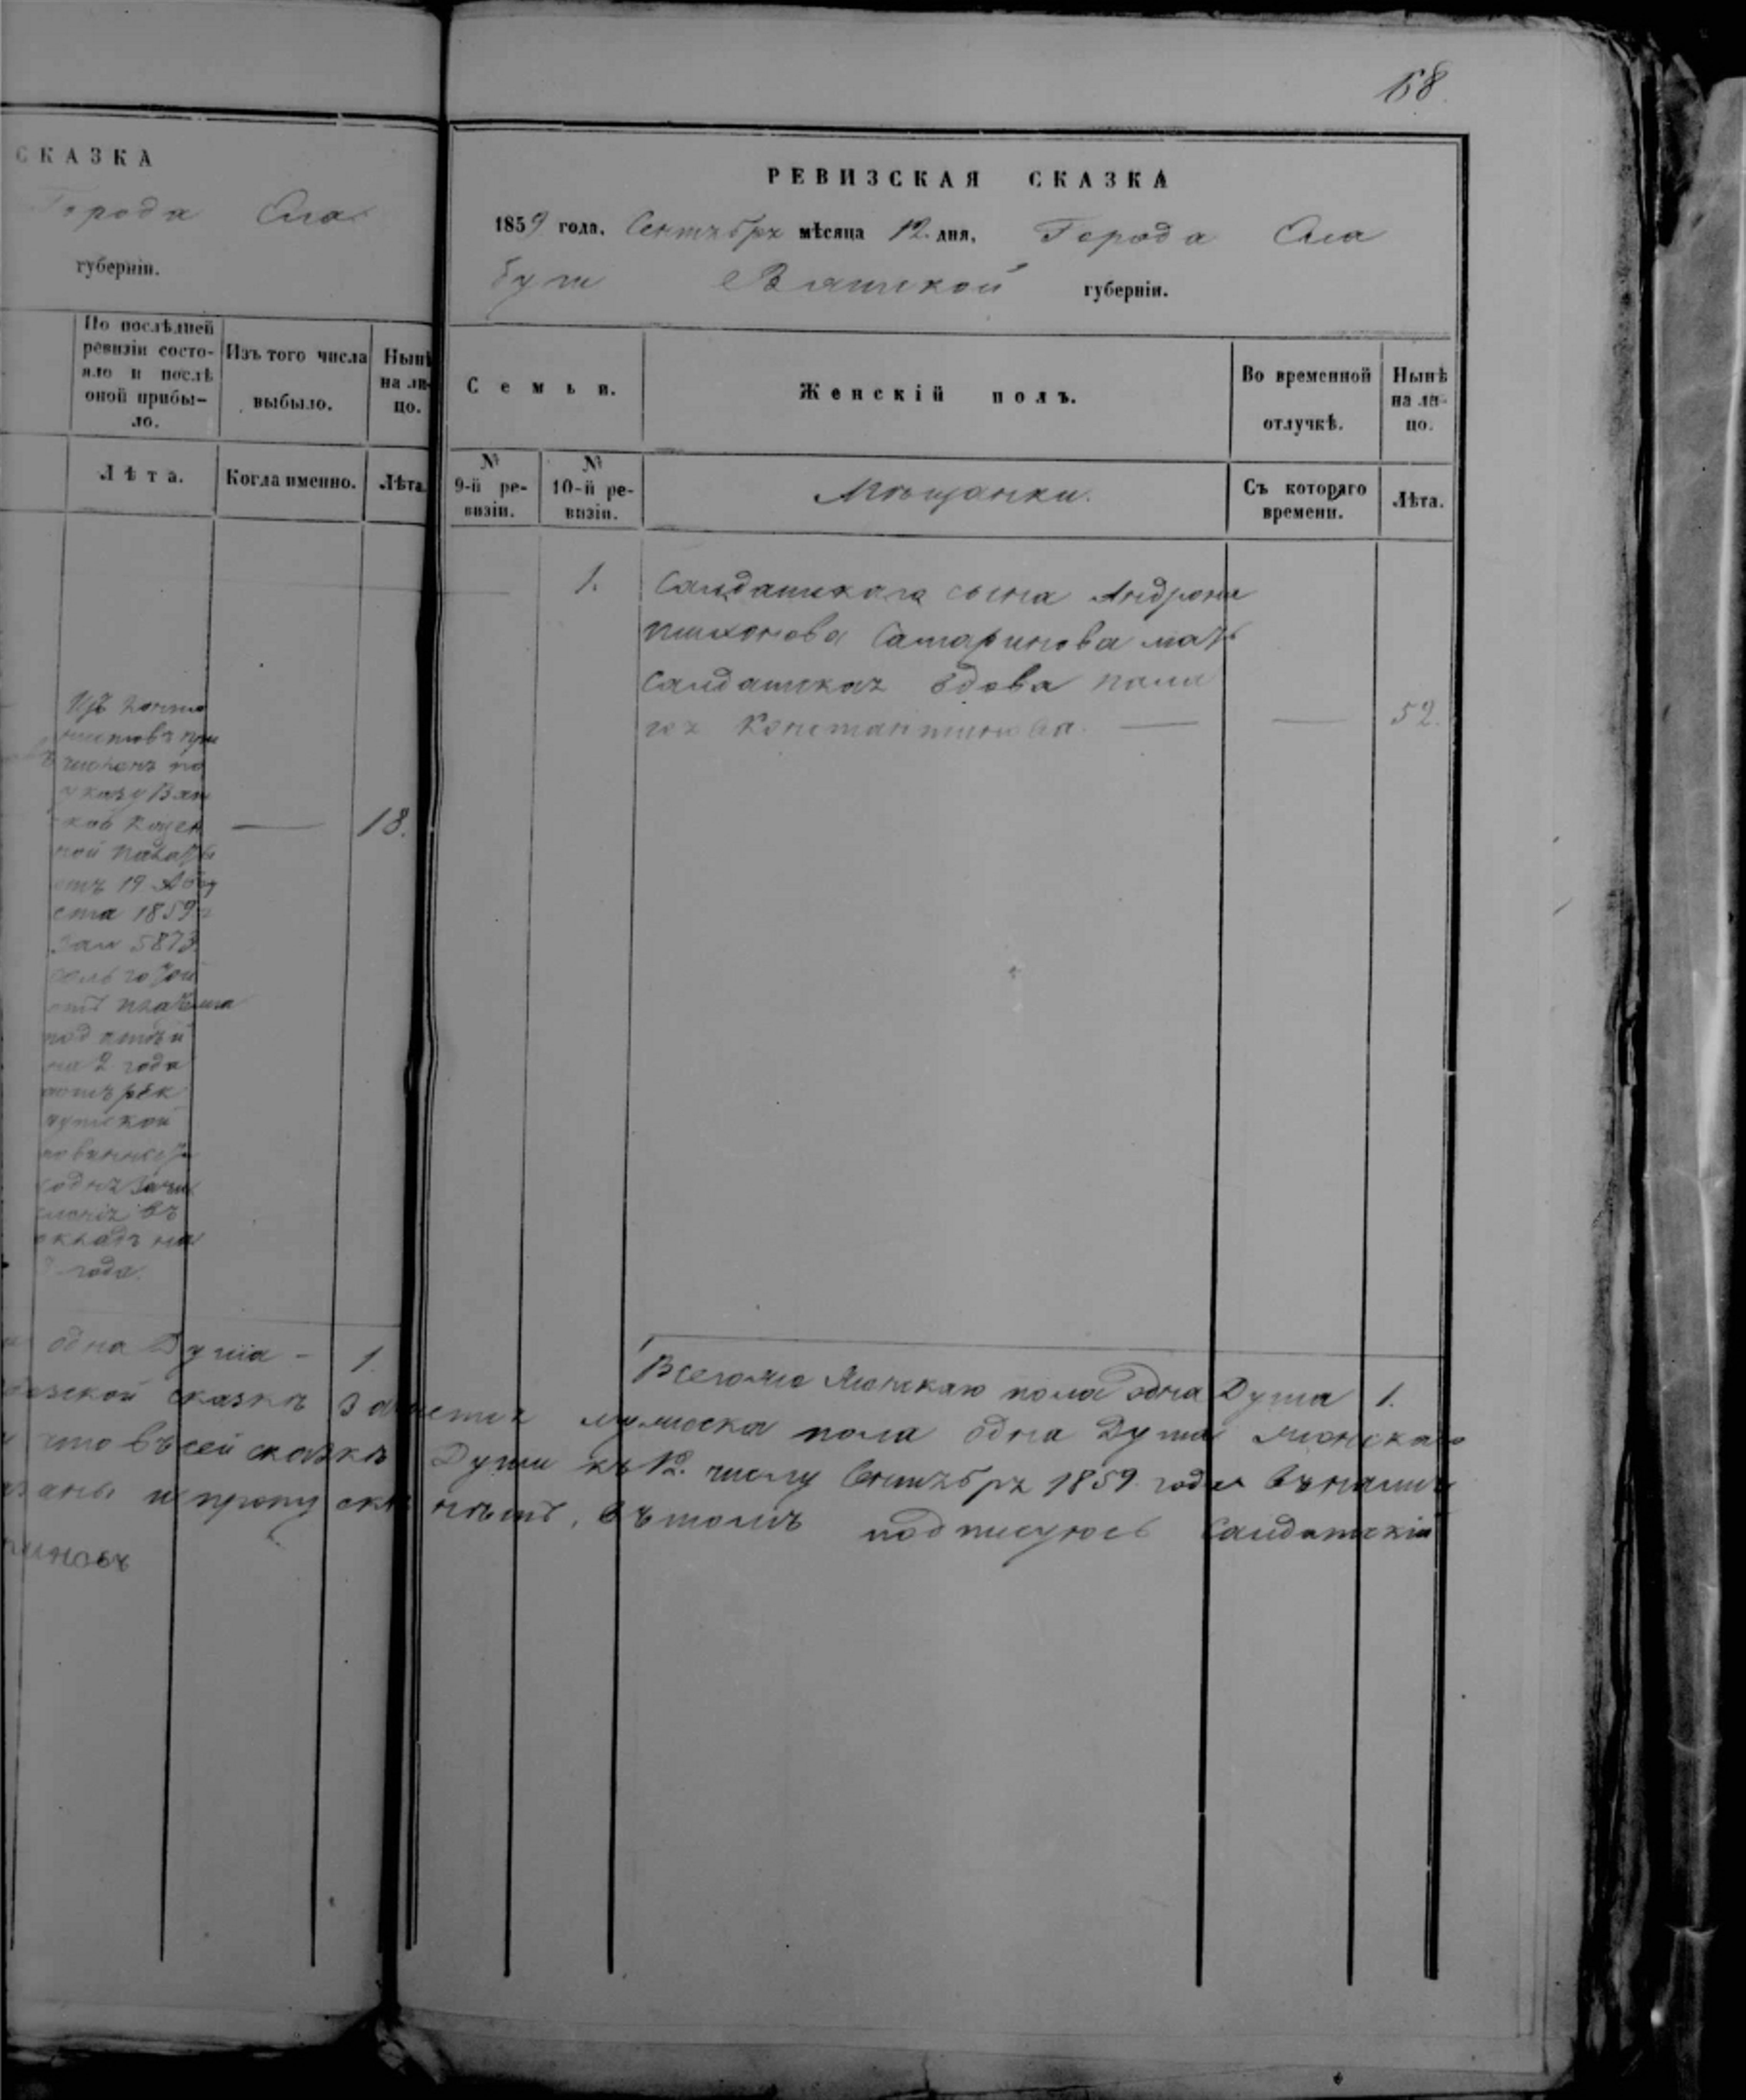 СКАЗКА
Города Ела
губерніи.
По послѣдней
ревизіи состо-
яло и послѣ
оной прибы-
ло.
Изъ того числа
выбыло.
Нынѣ
на ли-
цо.
Лѣта.
Когда именно.
Лѣта.
Изъ
численъ по
указу Вят
ской Казен
ной Палаты
отъ 19 Авгу
ста 1859 г
за № 5873
сольготой
отъ платежа
податей
на 2 года
рек
рутской
повинности
окладъ на
года.
18.
одна Душа - 1.
сказкѣ
что въ сей сказкѣ
и пропу
иновъ
158
РЕВИЗСКАЯ СКАЗКА
1859 года. Сентября мѣсяца 12 дня, Города Ела
буги Вятской губерніи.
Семьи.
Женскій полъ.
Во временной
отлучкѣ.
Нынѣ
на ли-
цо.
№
9-й ре-
визіи.
№
10-й ре-
визіи.
Мѣщанки.
Съ котораго
времени.
Лѣта.
1. Салдатскаго сына Андрона
Тихонова Сатаринова мать
Салдатская вдова Пала
гея Константинова. — — 52.
Всегоже Женскаго пола одна Душа 1.
мужеска пола одна Душа женскаго
Души къ 12. числу Сентября 1859 года въ
нѣтъ, въ томъ подписуюсь Салдатскій